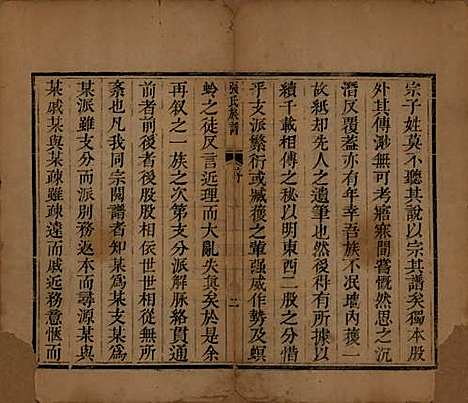 宗子姓莫不聽其說以宗其譜矣獨本股
外其傳渺無可考寤寒間嘗慨然思之沉
潛反覆益亦有年幸吾族不泯壇內獲一
紙却先人之遺筆也然得
續千載相傳之秘以明東西二股之分惜
乎支派繁衍或臧獲之輩强威作勢及螟
蛉之徒反言近理而大亂失眞矣於是余
張氏族譜
序
二
再叙之一族之次第支分派解脉絡貫通
前者前後者後相依世世相與有條
紊也凡我同宗閱譜者知某爲某
某派雖支分而派別務返本而尋源某與
某戚某與某疎雖疎遠而戚近務意愜而